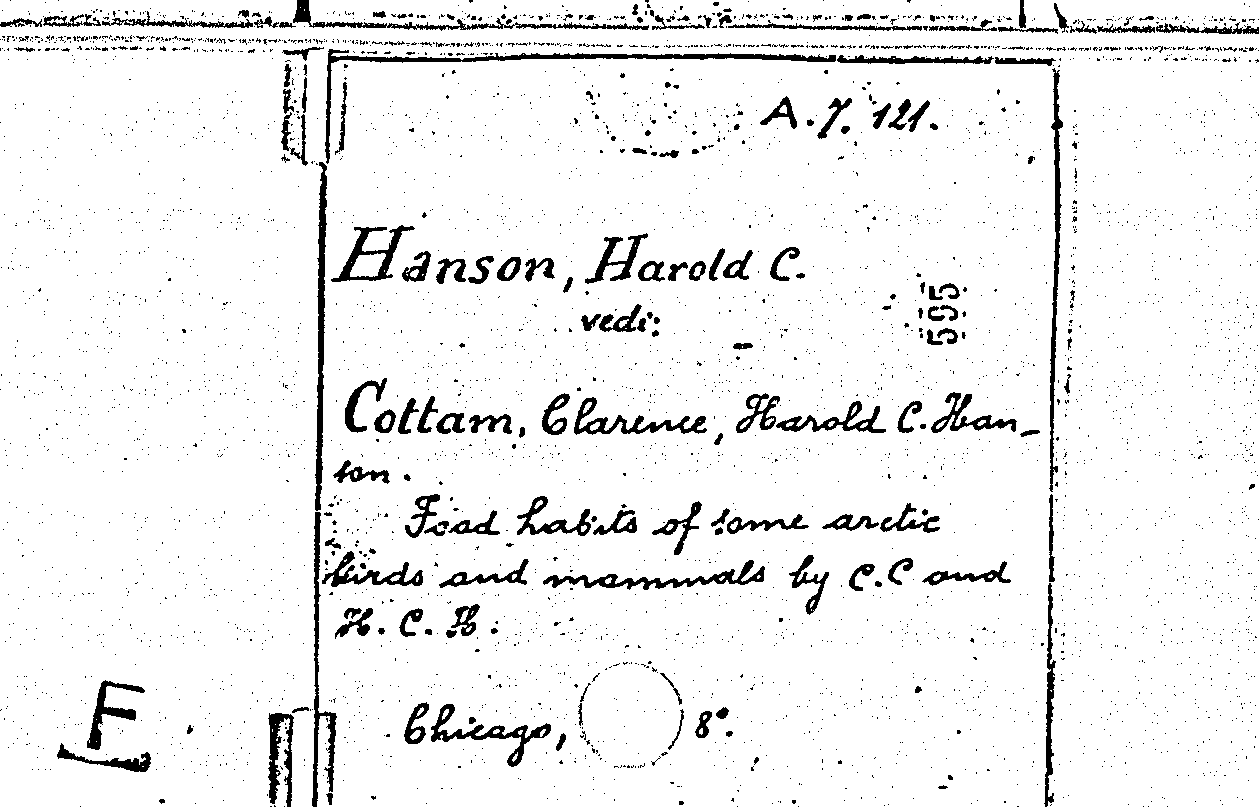 A.7. 121.
Hanson, Harold C.
vedi:
595
Cottam, Clarence, Harold C. Han-
son.
Food habits of some arctic
birds and mammals by C.C and
H. C. H.
Chicago, 8°.
F